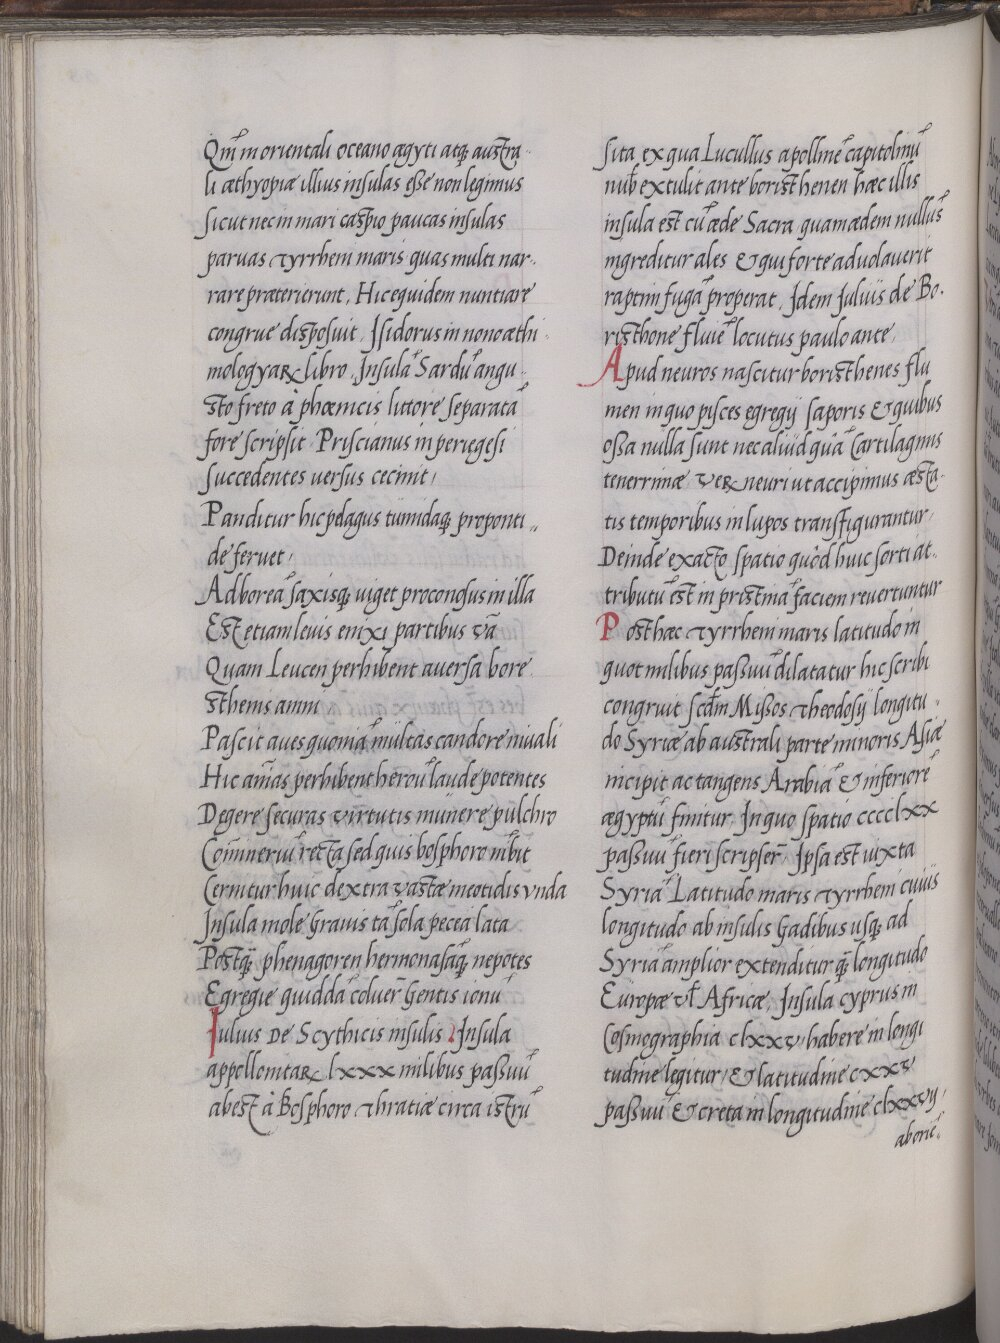 Qm̃ in orientali oceano ægyti atq; austra-
li æthyopiæ illius insulas esse non legimus
sicut nec in mari caspio paucas insulas
paruas tyrrheni maris quas multi nar-
rare praterierunt, Hic equidem nuntiare
congrue disposuit, Isidorus in nono æthi-
mologyaꝝ libro, Insulã Sardũ angu-
sto freto à phœnicis littore separatã
fore scripsit Priscianus in periegesi
succedentes versus cecinit,
Panditur hic pelagus tumidaq; proponti-
de feruet,
Ad boreã saxisq; uiget proconosus in illa
Est etiam leuis enixi partibus vã
Quam Leucen perhibent auersa bore
sthenis amni
Pascit aues quoniã multas candore niuali
Hic añas perhibent heroũ laude potentes
Degere securas virtutis munere pulchro
Cõinneriũ recta sed quis bosphoro nibit
Cernitur huic dextra vastæ meotidis vnda
Insula mole grauis tã sola pecea lata
Postq̃; phenagoren hermonasaq; nepotes
Egregie quidda coluer̃ gentis ionũ
Iulius De Scythicis insulis. Insula
appollonitaꝝ lxxx milibus passuũ
abest à Bosphoro thratiæ circa istrũ
sita ex qua Lucullus apolline͂ capitolinũ
nub̃ extulit ante boristhenen hæc illis
insula est cũ æde Sacra quam ædem nullus
ingreditur ales & qui forte aduolauerit
raptim fugã properat, Idem Iuluis de Bo-
risthone fluuiẽ locutus paulo ante,
Apud neuros nascitur boristhenes flu
men in quo pisces egregij saporis & quibus
ossa nulla sunt nec aliud quã cartilaginis
tenerrimæ veꝝ neuri ut accipimus æsta-
tis temporibus in lupos transfigurantur,
Deinde exacto spatio quòd huic sorti at-
tributũ est in pristinã faciem reuertuntur
Post hæc tyrrheni maris latitudo in
quot milibus passuũ dilatatur hic scribi
congruit scd̃m Missos theodosij longitu-
do Syriæ ab australi parte minoris Asiæ
incipit ac tangens Arabiã & inferiorẽ
ægyptũ finitur, In quo spatio cccclxx
passuũ fieri scripser̃, Ipsa est iuxta
Syriã Latitudo maris tyrrheni cuius
longitudo ab insulis Gadibus usq; ad
Syriã amplior extenditur q̃; longitudo
Europæ vl̃ Africæ, Insula cyprus in
Cosmographia clxxv, habere in longi
tudine legitur, & latitudine cxxv
passuũ & creta in longitudine clxxvij,
ab oriẽ-